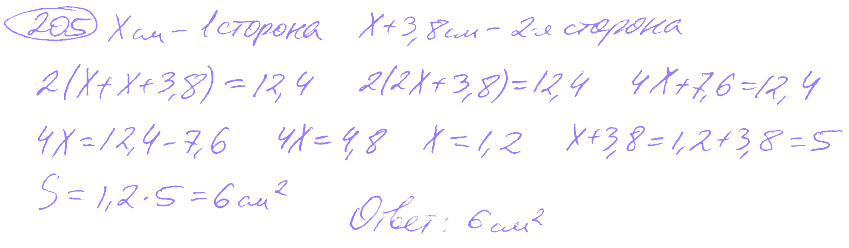 205 X см - 1 сторона X+3,8 см - 2-я сторона
2(X+X+3,8)=12,4 2(2X+3,8)=12,4 4X+7,6=12,4
4X=12,4-7,6 4X=4,8 X=1,2 X+3,8=1,2+3,8=5
S=1,2·5=6 см²
Ответ: 6 см²